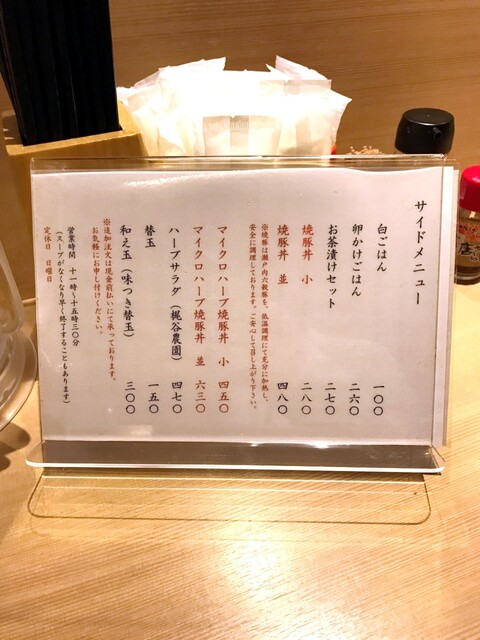 サイドメニュー
白ごはん 一〇〇
卵かけごはん 二六〇
お茶漬けセット 二七〇
焼豚丼 小 二八〇
焼豚丼 並 四八〇
※焼豚は瀬戸内六穀豚を、低温調理にて充分に加熱し、
安全に調理しております。ご安心して召し上がり下さい。
マイクロハーブ焼豚丼 小 四五〇
マイクロハーブ焼豚丼 並 六三〇
ハーブサラダ(梶谷農園) 四七〇
替玉 一五〇
和え玉(味つき替玉) 三〇〇
※追加注文は現金前払いにて承っております。
お気軽にお申し付けください。
営業時間 十一時～十五時三〇分
(スープがなくなり早く終了することもあります)
定休日 日曜日